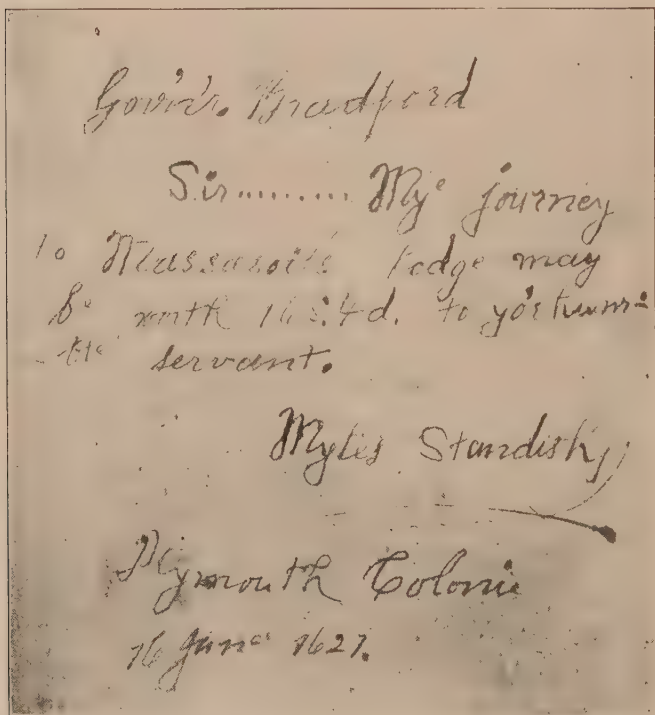 Gov'r. Bradford
Sir......... Mye journey
to Massasoit's Lodge may
be worth 16s.4d. to yor hum-
-ble servant.
Myles Standish
Plymouth Colonie
16 June 1621.